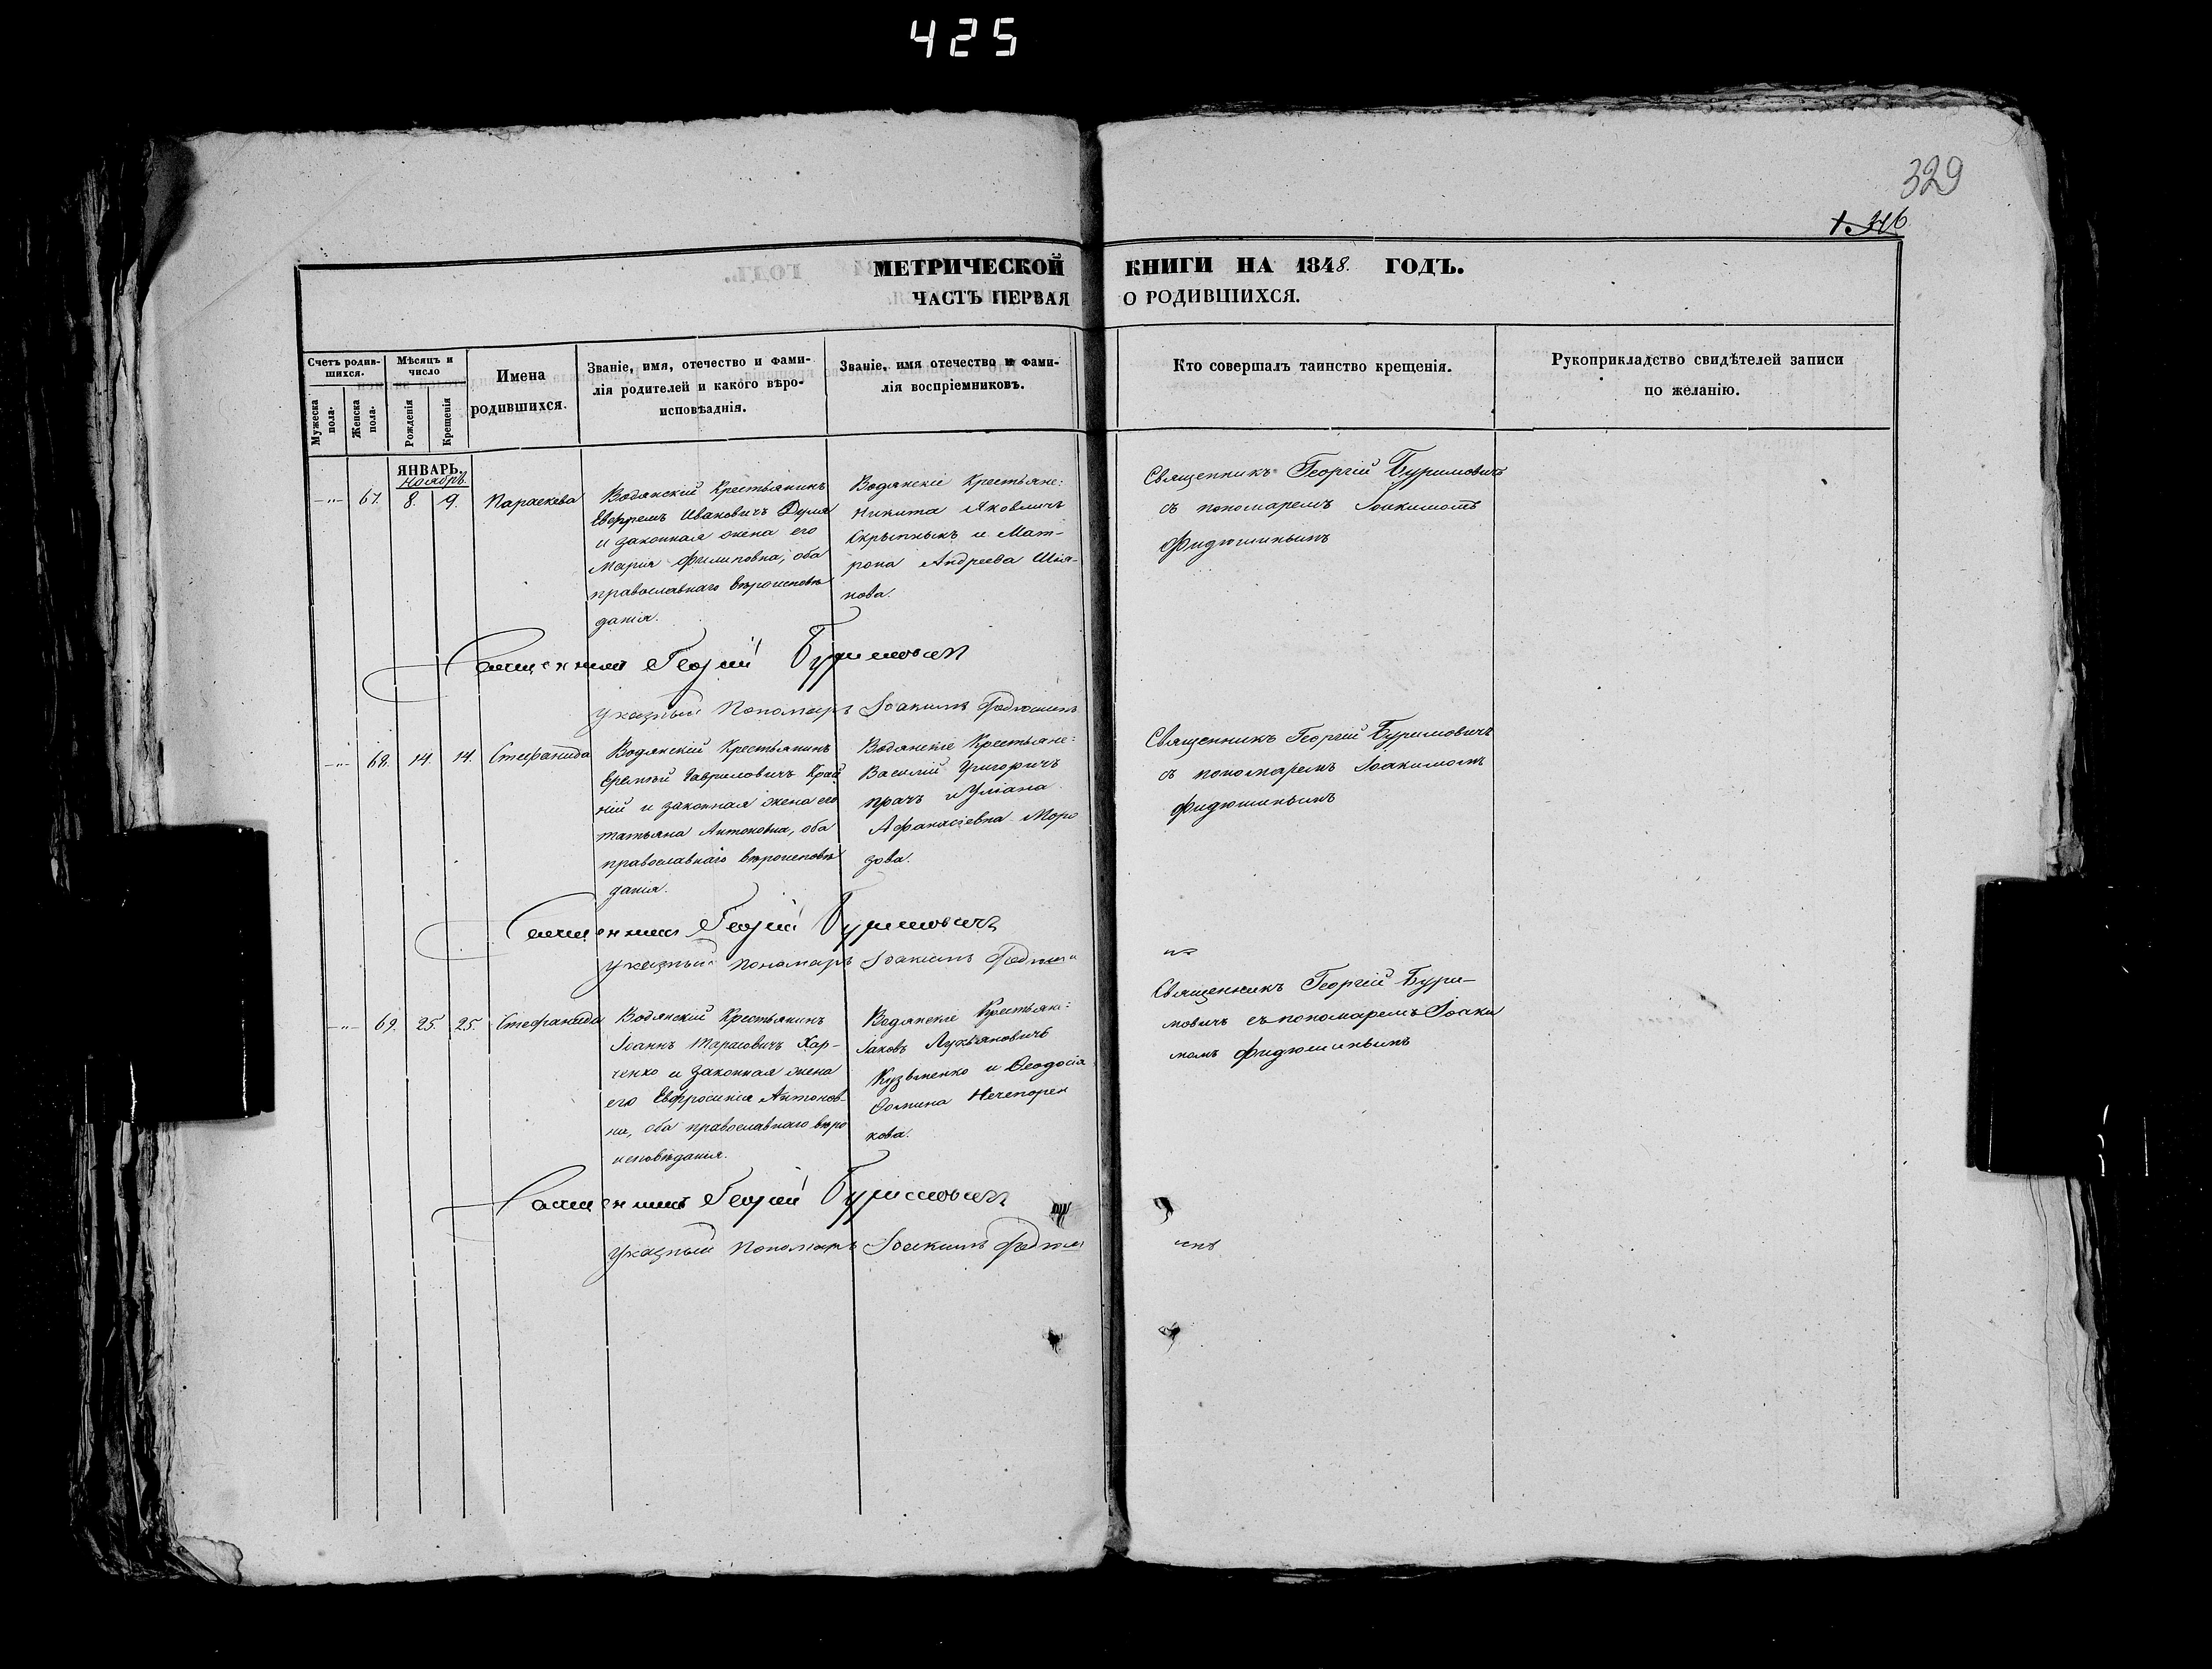 425
329
МЕТРИЧЕСКОЙ КНИГИ НА 1848. ГОДЪ.
ЧАСТЬ ПЕРВАЯ О РОДИВШИХСЯ.
Счетъ родив-
шихся.
Мужеска
пола.
Женска
пола.
Мѣсяцъ и
число
Рожденія
Крещенія
Имена
родившихся.
Званіе, имя, отечество и фами-
лія родителей и какого вѣро-
исповѣаднія.
Званіе, имя отечество и фами-
лія воспріемниковъ.
Кто совершалъ таинство крещенія.
Рукоприкладство свидѣтелей записи
по желанію.
ЯНВАРЬ.
Ноябрь
67. 8. 9. Параскева
Водянскій Крестьянинъ
Ефремъ Ивановичъ Дуля
и законная жена его
Марія Филиповна, оба
православнаго вѣроисповѣ
данія.
Водянскіе Крестьяне:
Никита Яковличъ
Скрыпныкъ и Мат-
рона Андреева
нова.
Священникъ Георгій Буримовичъ
съ пономаремъ Іоакимомъ
Фидюшинымъ
Священникъ Георгій Буримовичъ
Указный Пономарь Іоакимъ Федюшинъ
68. 14. 14. Стефанида
Водянскій Крестьянинъ
Гавриловичъ Край
ній и законная жена его
Татьяна Антоновна, оба
православнаго вѣроисповѣ
данія.
Водянскіе Крестьяне:
Василій Григоричъ
Прачъ и Уліана
Афанасіевна Моро
зова.
Священникъ Георгій Буримовичъ
съ пономаремъ Іоакимомъ
Фидюшинымъ
Священникъ Георгій Буримовичъ
Указный Пономарь Іоакимъ
69. 25. 25. Стефанида
Водянскій Крестьянинъ
Іоаннъ Тарасовичъ Хар-
ченко и законная жена
его Евфросинія Антонов-
на, оба православнаго вѣро
исповѣданія.
Водянскіе Крестьяне:
Іаковъ Лукьяновичъ
Кузьменко и Ѳеодосія
Ѳомина Нечепорен
кова.
Священникъ Георгій Бури-
мовичъ съ пономаремъ Іоаки
момъ Фидюшинымъ
Священникъ Георгій Буримовичъ
Указный Пономарь Іоакимъ Федюш инъ